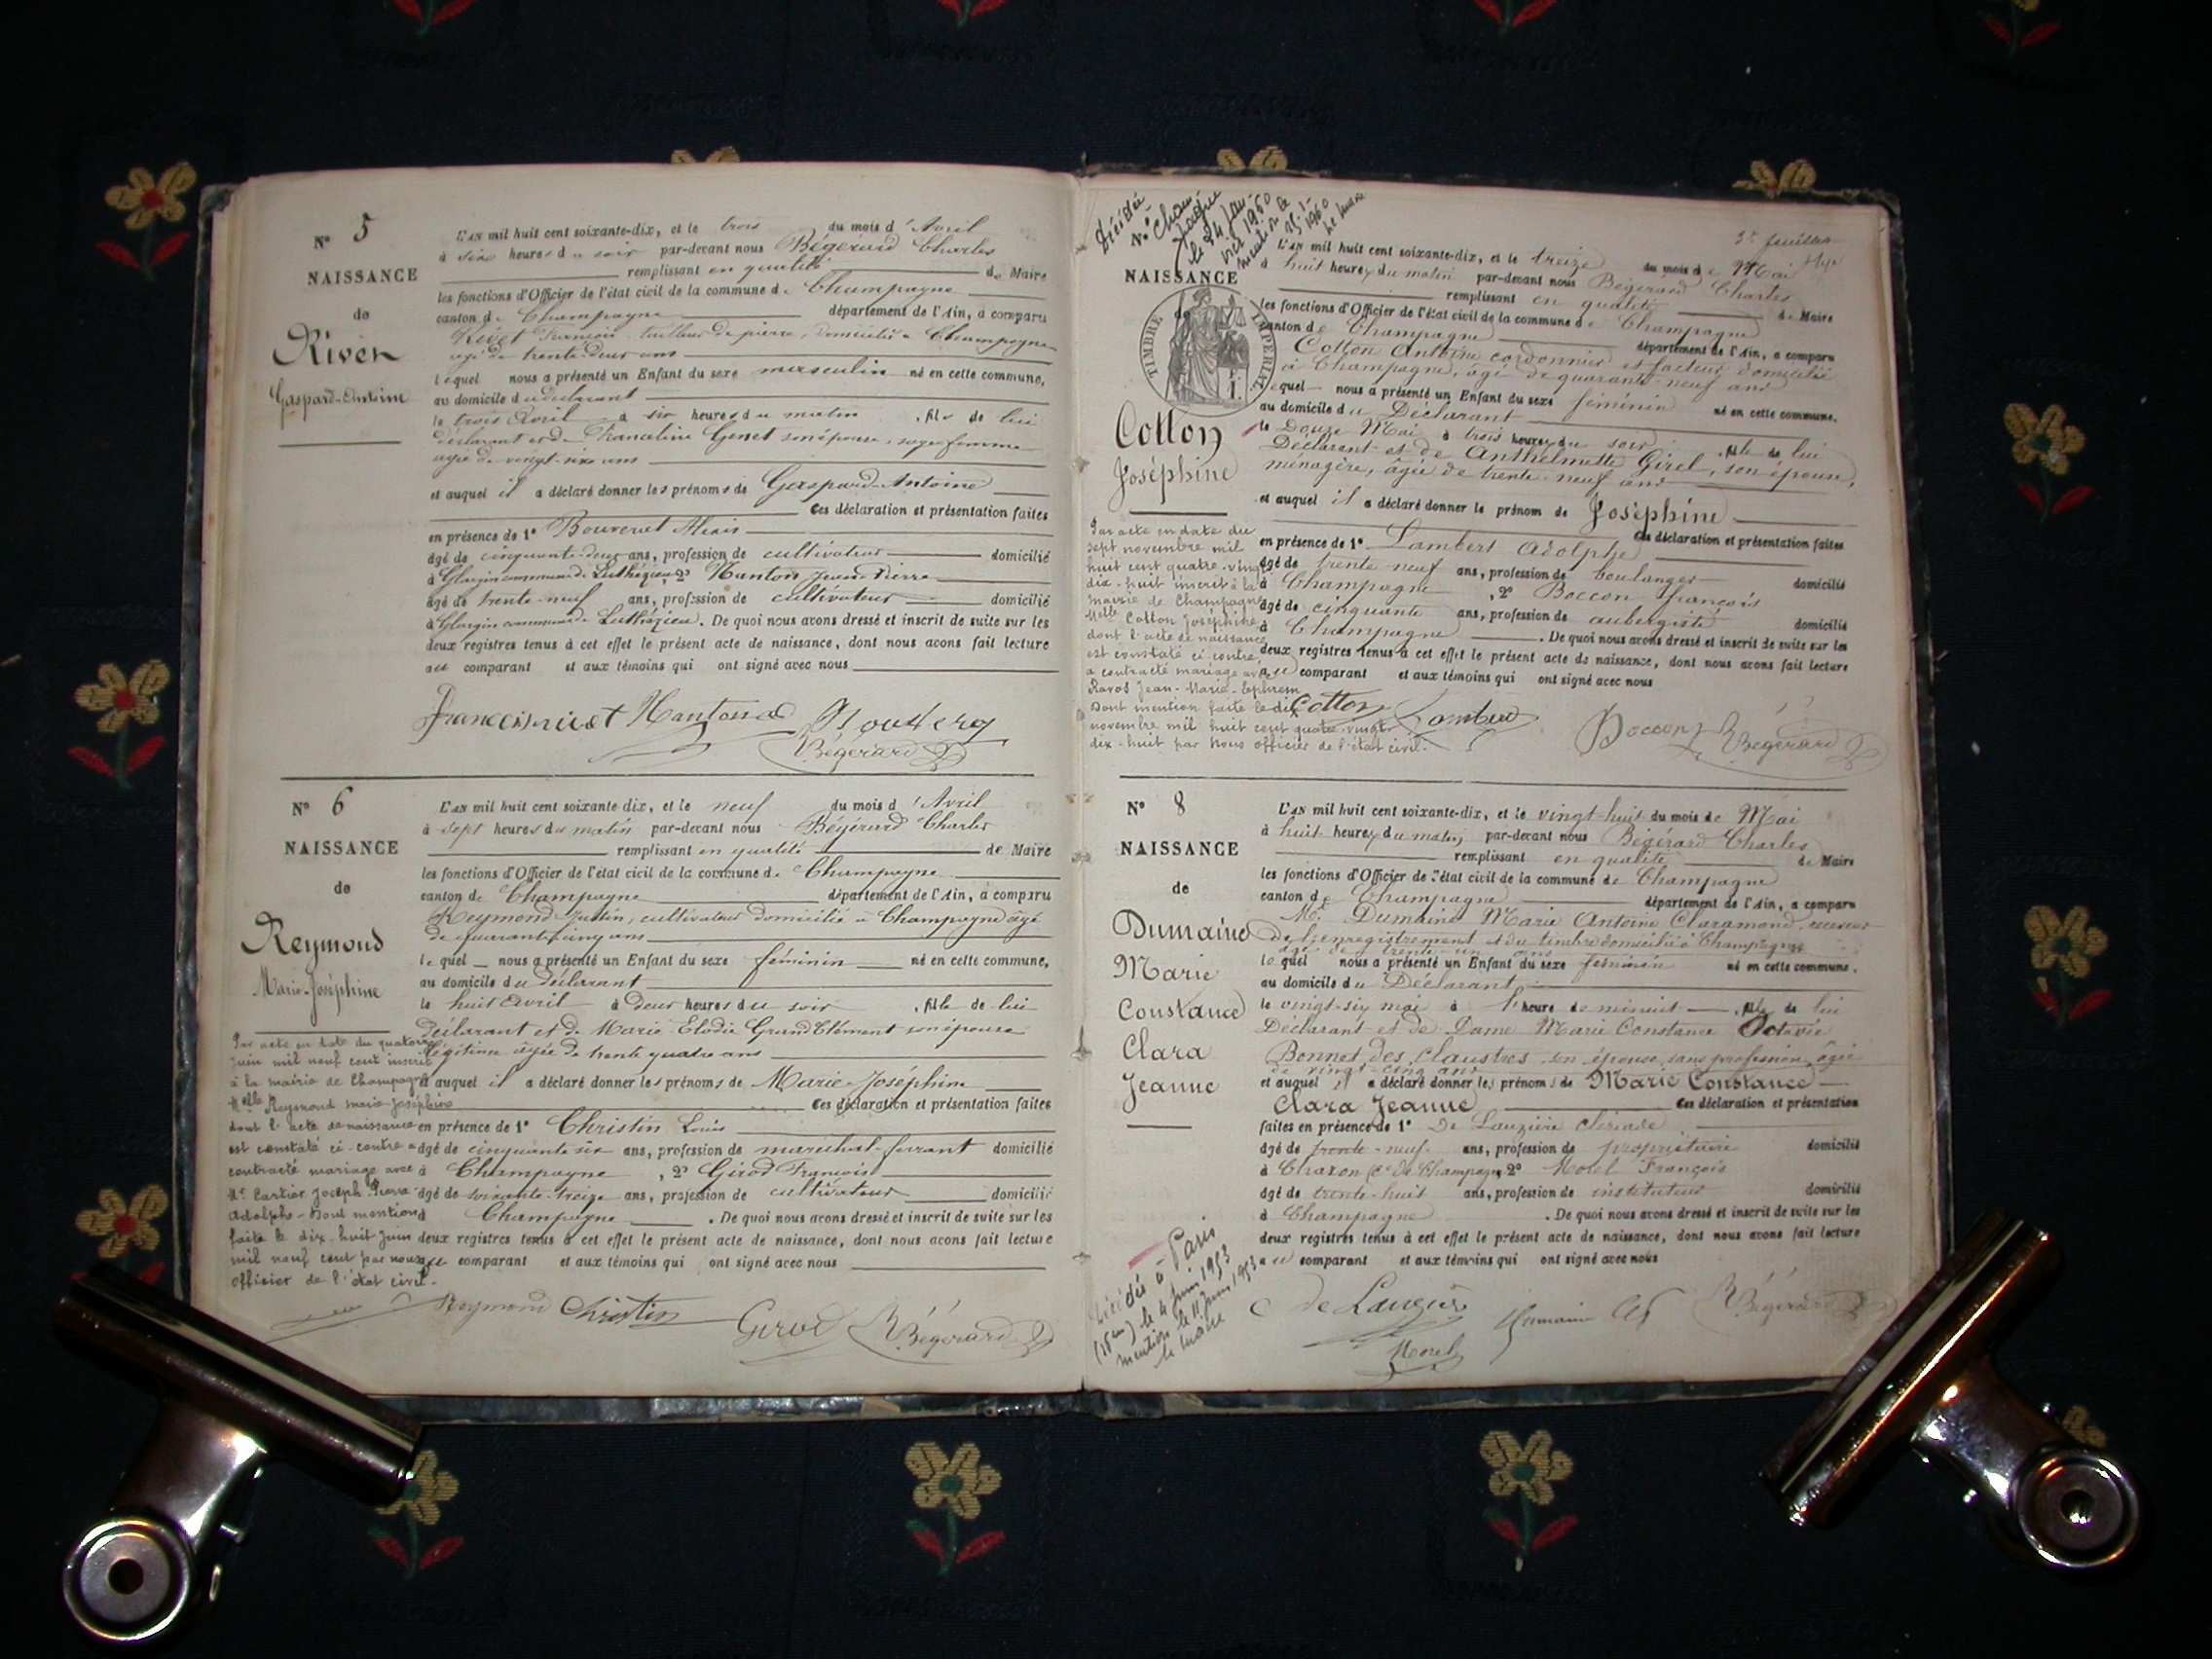 N° 5
NAISSANCE
de
Rivet
Gaspard-Antoine
L'AN mil huit cent soixante-dix, et le trois du mois d'Avril
à six heures du soir par-devant nous Bégérard Charles
remplissant en qualité de Maire
les fonctions d'Officier de l'état civil de la commune de Champagne
canton de Champagne département de l'Ain, a comparu
Rivet François tailleur de pierre, domicilié à Champagne
agé de trente deux ans
lequel nous a présenté un Enfant du sexe masculin né en cette commune,
au domicile du déclarant
le trois Avril à six heures du matin, fils de lui
déclarant et de Franceline Genet son épouse, sage femme
agée de vingt-six ans
et auquel il a déclaré donner les prénoms de Gaspard-Antoine
Ces déclaration et présentation faites
en présence de 1°
âgé de cinquante-deux ans, profession de cultivateur domicilié
à commune de Luthézieu, 2° Jean-Pierre
âgé de trente-neuf ans, profession de cultivateur domicilié
à commune de Luthézieu. De quoi nous avons dressé et inscrit de suite sur les
deux registres tenus à cet effet le présent acte de naissance, dont nous avons fait lecture
au comparant et aux témoins qui ont signé avec nous
Bégérard
N° 6
NAISSANCE
de
Reymond
Marie-Joséphine
L'AN mil huit cent soixante-dix, et le neuf du mois d'Avril
à sept heures du matin par-devant nous Bégérard Charles
remplissant en qualité de Maire
les fonctions d'Officier de l'état civil de la commune de Champagne
canton de Champagne département de l'Ain, a comparu
Reymond Justin, cultivateur domicilié à Champagne âgé
de quarante cinq ans
lequel nous a présenté un Enfant du sexe féminin né en cette commune,
au domicile du déclarant
le huit Avril à deux heures du soir, fille de lui
déclarant et de Marie Elodie Grand Clément son épouse
légitime âgée de trente quatre ans
et auquel il a déclaré donner les prénoms de Marie-Joséphine
Ces déclaration et présentation faites
en présence de 1° Christin Louis
âgé de cinquante six ans, profession de maréchal-ferrant domicilié
à Champagne, 2° Girod François
âgé de soixante-treize ans, profession de cultivateur domicilié
à Champagne. De quoi nous avons dressé et inscrit de suite sur les
deux registres tenus à cet effet le présent acte de naissance, dont nous avons fait lecture
au comparant et aux témoins qui ont signé avec nous
Par acte en date du quatorze
Juin mil neuf cent inscrit
à la mairie de Champagne
Melle Reymond Marie-Joséphine
dont l'acte de naissance
est constaté ci-contre a
contracté mariage avec
Mr Cartier Joseph Pierre
Adolphe - Dont mention
faite le dix-huit Juin
mil neuf cent par nous
officier de l'état civil.
Reymond Christin Girod Bégérard
3e feuillet
Décédée
à Champagne
le 24 jan-
vier 1960
mention le
25-1-
1960
Le Maire
N°
NAISSANCE
de
TIMBRE IMPÉRIAL
Cotton
Joséphine
L'AN mil huit cent soixante-dix, et le treize du mois de Mai
à huit heures du matin par-devant nous Bégérard Charles
remplissant en qualité de Maire
les fonctions d'Officier de l'état civil de la commune de Champagne
canton de Champagne département de l'Ain, a comparu
Cotton Antoine cordonnier et facteur domicilié
à Champagne, âgé de quarante-neuf ans
lequel nous a présenté un Enfant du sexe féminin né en cette commune,
au domicile du Déclarant
le Douze Mai à trois heures du soir, fille de lui
Déclarant et de Anthelmette Girel, son épouse,
ménagère, âgée de trente-neuf ans
et auquel il a déclaré donner le prénom de Joséphine
Ces déclaration et présentation faites
en présence de 1° Lambert Adolphe
âgé de trente-neuf ans, profession de boulanger domicilié
à Champagne, 2° Boccon François
âgé de cinquante ans, profession de aubergiste domicilié
à Champagne. De quoi nous avons dressé et inscrit de suite sur les
deux registres tenus à cet effet le présent acte de naissance, dont nous avons fait lecture
au comparant et aux témoins qui ont signé avec nous
Par acte en date du
sept novembre mil
huit cent quatre-vingt
dix-huit inscrit à la
mairie de Champagne
Melle Cotton Joséphine
dont l'acte de naissance
est constaté ci-contre,
a contracté mariage avec
Ravos Jean-Marie-Ephrem
Dont mention faite le dix
novembre mil huit cent quatre-vingt
dix-huit par nous officier de l'état civil.
Cotton Lambert Boccon Bégérard
N° 8
NAISSANCE
de
Dumaine
Marie
Constance
Clara
Jeanne
L'AN mil huit cent soixante-dix, et le vingt-huit du mois de Mai
à huit heures du matin, par-devant nous Bégérard Charles
remplissant en qualité de Maire
les fonctions d'Officier de l'état civil de la commune de Champagne
canton de Champagne département de l'Ain, a comparu
Mr Dumaine Marie Antoine Claramond, receveur
de l'enregistrement et du timbre domicilié à Champagne
âgé de trente-un ans
lequel nous a présenté un Enfant du sexe féminin né en cette commune,
au domicile du Déclarant
le vingt-six mai à heure de minuit, fille de lui
Déclarant et de Dame Marie Constance Octavie
Bonnet des Claustres son épouse, sans profession, âgée
de vingt-cinq ans
et auquel il a déclaré donner les prénoms de Marie Constance
Clara Jeanne Ces déclaration et présentation
faites en présence de 1° De Lauzière
âgé de trente-neuf ans, profession de propriétaire domicilié
à Charon Cne de Champagne, 2° Morel François
âgé de trente-huit ans, profession de instituteur domicilié
à Champagne. De quoi nous avons dressé et inscrit de suite sur les
deux registres tenus à cet effet le présent acte de naissance, dont nous avons fait lecture
au comparant et aux témoins qui ont signé avec nous
Décédée à Paris
le 4 juin 1953
mention le 11 juin 1953
le maire
De Lauzière Dumaine Bégérard
Morel